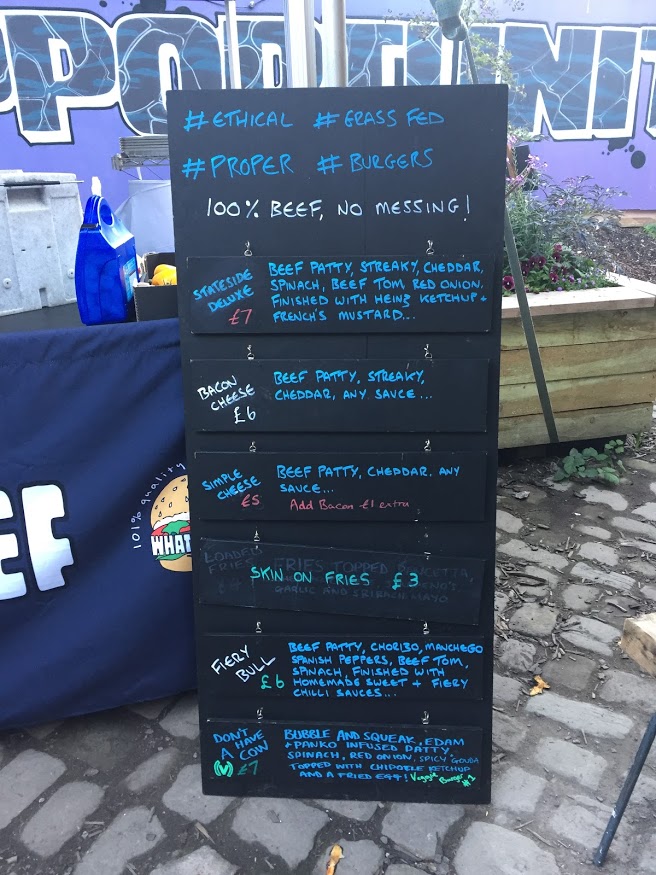 PPORTUNIT
#ETHICAL #GRASS FED
#PROPER #BURGERS
100% BEEF, NO MESSING!
STATESIDE
DELUXE
£7
BEEF PATTY, STREAKY, CHEDDAR,
SPINACH, BEEF TOM, RED ONION.
FINISHED WITH HEINZ KETCHUP +
FRENCH'S MUSTARD...
BACON
CHEESE
£6
BEEF PATTY, STREAKY,
CHEDDAR, ANY SAUCE...
SIMPLE
CHEESE
£5
BEEF PATTY, CHEDDAR. ANY
SAUCE...
Add Bacon £1 extra
LOADED
FRIES
FRIES TOPPED
GARLIC AND SRIRACHA MAYO
SKIN ON FRIES £3
FIERY
BULL
£6
BEEF PATTY, CHORIZO, MANCHEGO
SPANISH PEPPERS, BEEF TOM,
SPINACH, FINISHED WITH
HOMEMADE SWEET + FIERY
CHILLI SAUCES...
DON'T
A HAVE
COW
V £7
BUBBLE AND SQUEAK, EDAM
+ PANKO INFUSED PATTY,
SPINACH, RED ONION, SPICY GOUDA
TOPPED WITH CHIPOTLE KETCHUP
AND A FRIED EGG! Veggie Burger #1
EF
101% quality
WHAT